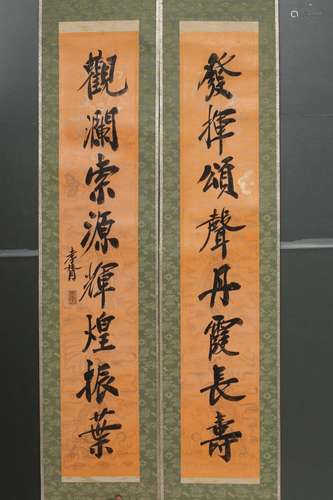 發揮頌聲丹霞長壽
觀瀾索源輝煌振葉